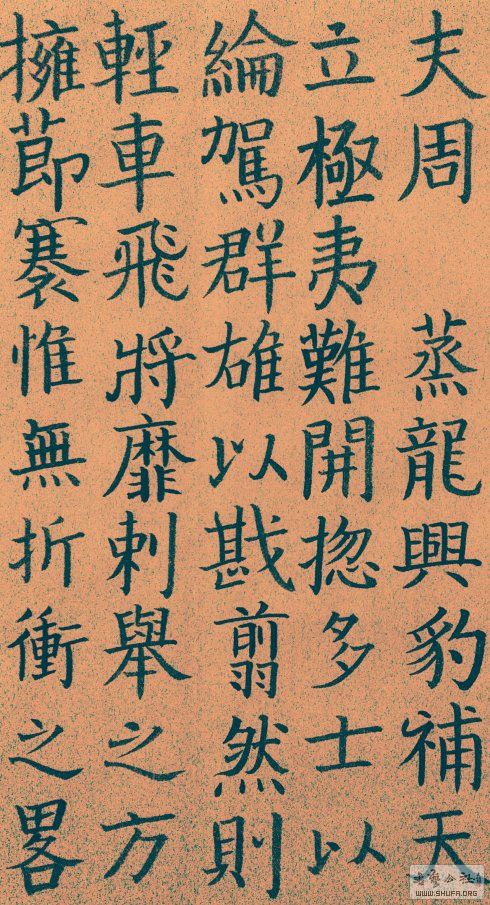 夫周蒸龍興豹補天
立極夷難開揔多士以
綸駕群雄以戡翦然則
輕車飛將靡刺舉之方
擁節褰惟無折衝之畧
WWW.SHUFA.ORG